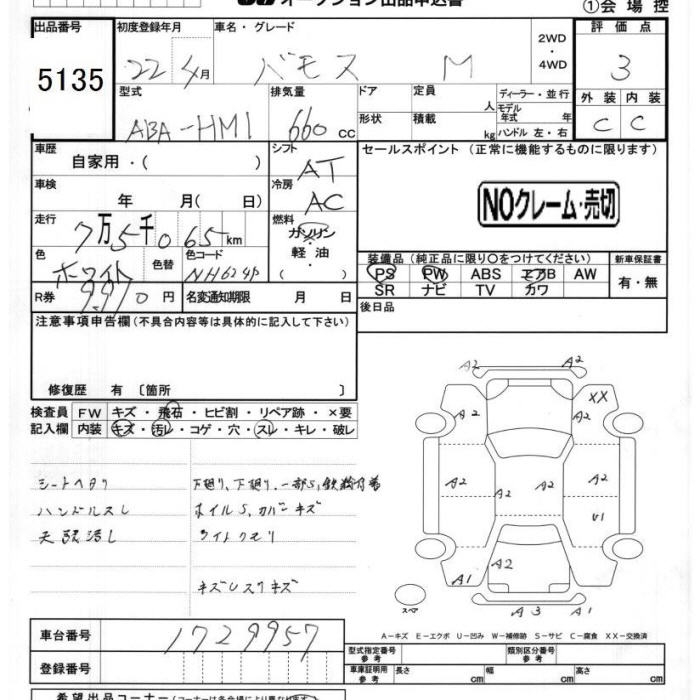 オークション出品申込書
①会場控
出品番号 初度登録年月 車名・グレード 2WD・4WD 評価点
5135 22年4月 バモス M 3
型式 排気量 ドア 定員 人 ディーラー・並行 外装 内装
ABA-HM1 660cc 形状 積載 kg モデル年式 年 ハンドル 左・右 C C
車歴 自家用・( ) シフト AT セールスポイント (正常に機能するものに限ります)
車検 年 月( 日) 冷房 AC
NOクレーム・売切
走行 7万5千065km 燃料 ガソリン・軽油・( )
色 ホワイト 色替 色コード NH624P
装備品(純正品に限り〇をつけてください) 新車保証書
PS PW ABS エアB AW 有・無
SR ナビ TV カワ
R券 9,910円 名変通知期限 月 日
後日品
注意事項申告欄(不具合内容等は具体的に記入して下さい)
修復歴 有 〔箇所 〕
検査員記入欄 FW キズ・飛石・ヒビ割・リペア跡・×要
内装 キズ・汚レ・コゲ・穴・スレ・キレ・破レ
シートヘタリ 下廻り、下廻り、一部S,鉄粉付着
ハンドルスレ ホイルS,カバーキズ
天張汚レ ライトクモリ
キズUスリキズ
A2 A2
XX
A2 A2
A2 A2 A2
U1
A2
A1 A3 A1
スペア
A-キズ E-エクボ U-凹み W-補修跡 S-サビ C-腐食 XX-交換済
車台番号 1729957
型式指定番号 参考 類別区分番号 参考
登録番号
車庫証明用 参考 長さ cm 幅 cm 高さ cm
希望出品コーナー(コーナーは各会場により異なります)